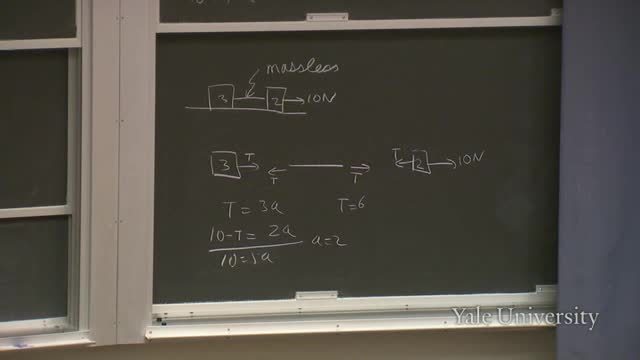 massless
3 2 10N
3 T T T T 2 10N
T = 3a T=6
10-T = 2a
10=5a a=2
Yale University